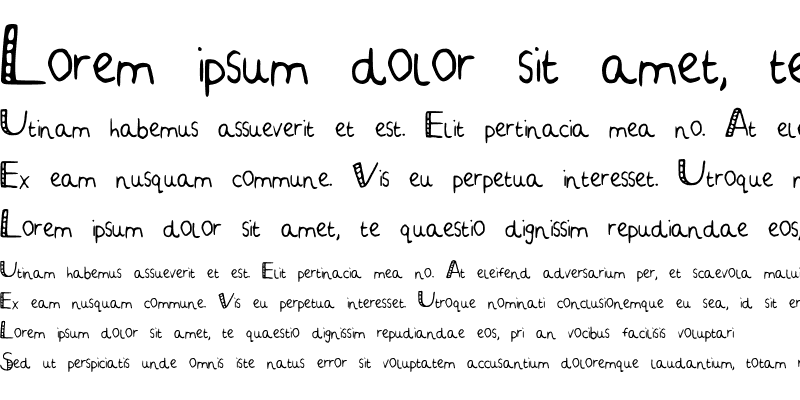 Lorem ipsum dolor sit amet, te
Utinam habemus assueverit et est. Elit pertinacia mea no. At
Ex eam nusquam commune. Vis eu perpetua interesset. Utroque
Lorem ipsum dolor sit amet, te quaestio dignissim repudiandae eos,
Utinam habemus assueverit et est. Elit pertinacia mea no. At eleifend adversarium per, et scaevola
Ex eam nusquam commune. Vis eu perpetua interesset. Utroque nominati conclusionemque eu sea, id sit
Lorem ipsum dolor sit amet, te quaestio dignissim repudiandae eos, pri an vocibus facilisis voluptari
Sed ut perspiciatis unde omnis iste natus error sit voluptatem accusantium doloremque laudantium, totam